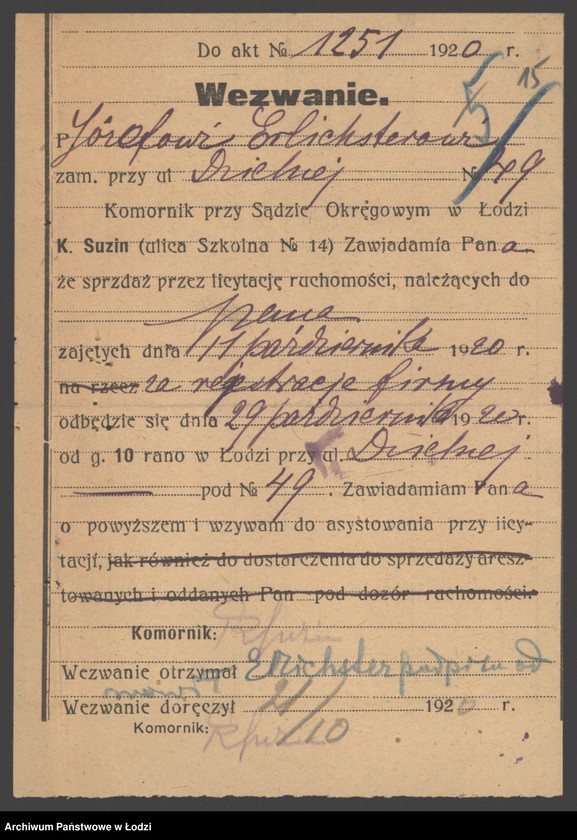 Do akt № 1251 1920 r.
15
5
Wezwanie.
P Józefowi Erlichsterowi
zam. przy ul Dzielnej № 49
Komornik przy Sądzie Okręgowym w Łodzi
K. Suzin (ulica Szkolna № 14) Zawiadamia Pana
że sprzdaż przez licytację ruchomości, należących do
pana
zajętych dnia 11 października 1920 r.
na rzecz za rejestrację firmy
odbędzie się dnia 29 października 1920 r.
od g. 10 rano w Łodzi przy ul. Dzielnej
pod № 49. Zawiadamiam Pana
o powyższem i wzywam do asystowania przy licy-
tacji, jak również do dostarczenia do sprzedaży aresz-
towanych i oddanych Pan pod dozór ruchomości.
Komornik:
Wezwanie otrzymał Erlichster podpisu od
Wezwanie doręczył 21/10 1920 r.
Komornik:
Archiwum Państwowe w Łodzi